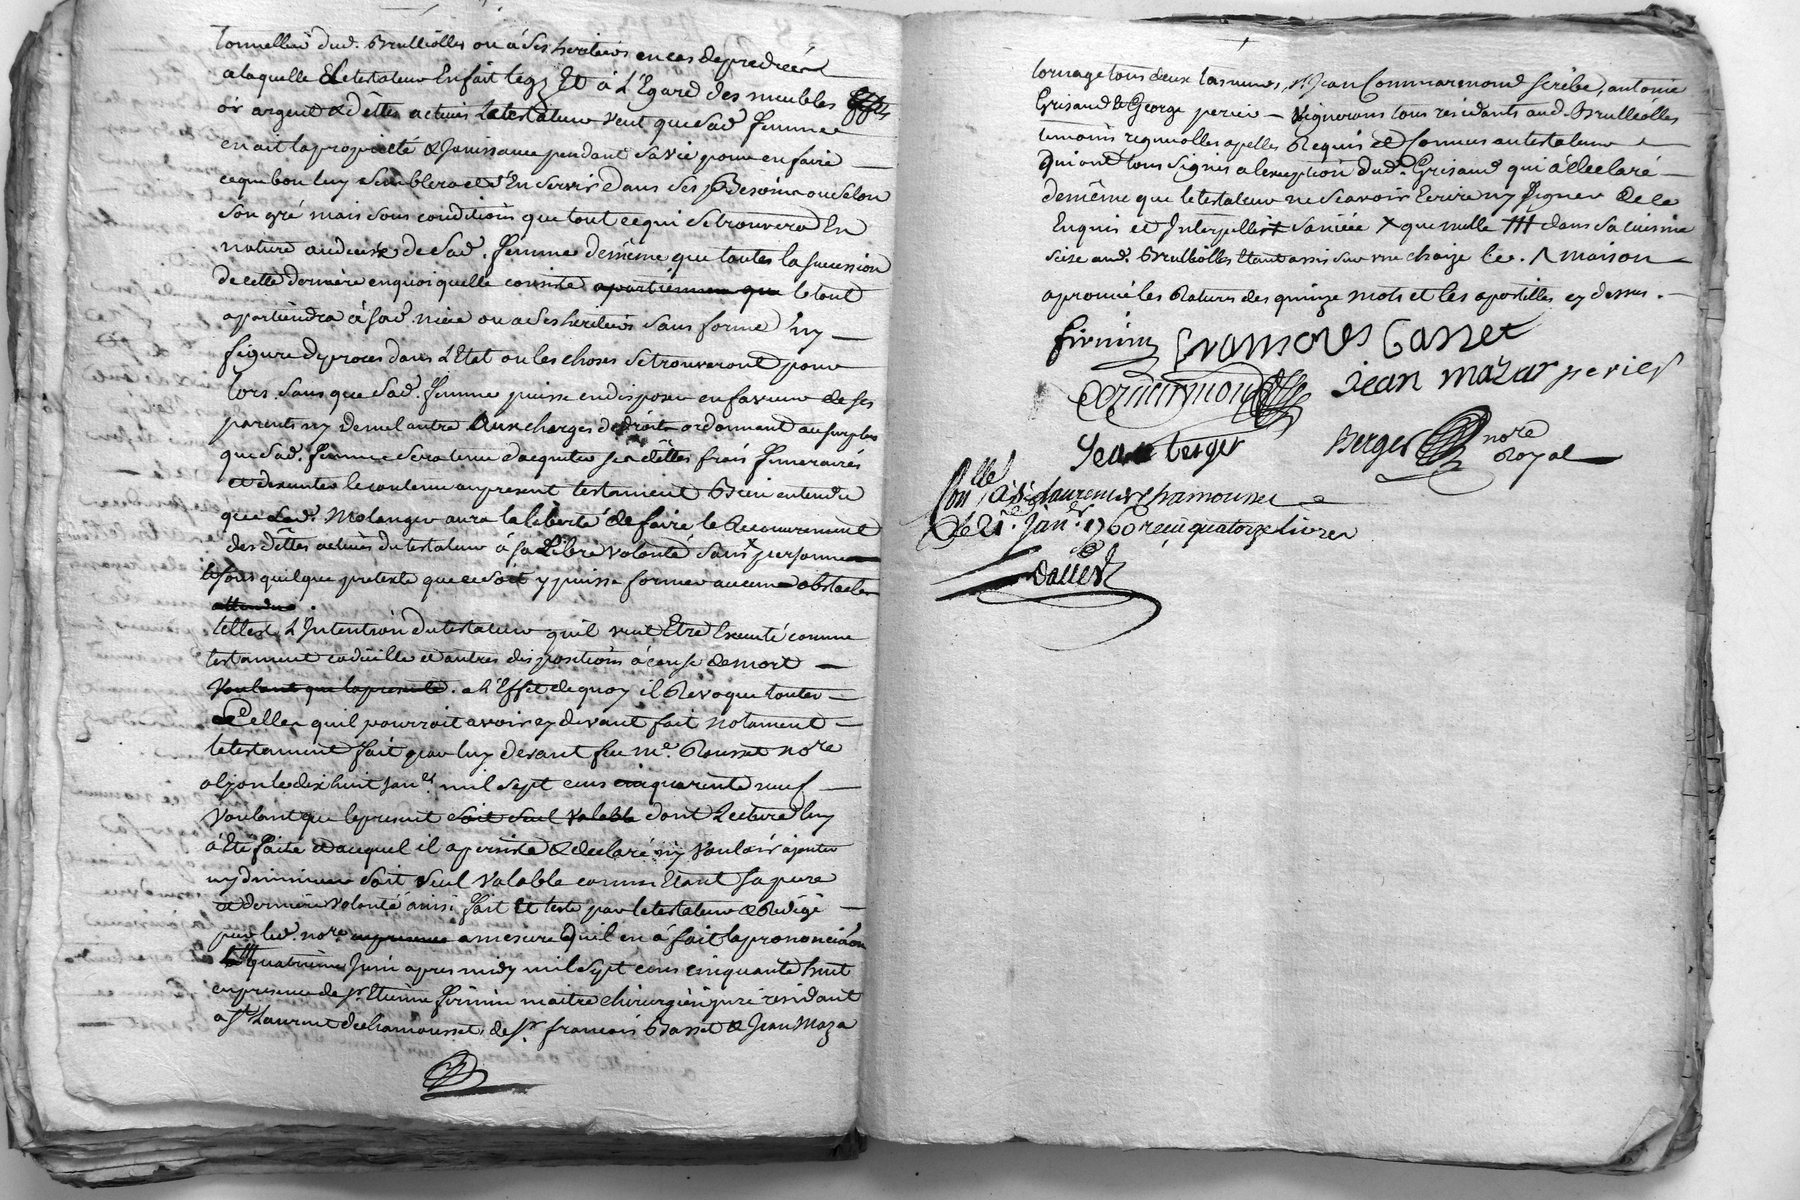 tonnellier dud. Brulliolles ou à ses heritiers en cas de predecés
a laquelle Le testateur En fait legz Et à L'Egard des meubles Effets
or argent & dettes actives Le testateur veut que sad. femme
en ait la proprieté & Jouissance pendant sa vie pour en faire
ce que bon luy semblera et s'En servir dans ses Besoins ou selon
son gré mais sous conditions que tout ce qui se trouvera En
nature au deces de sad. femme de même que toutes la succession
de cette derniere en quoi quelle consiste apartiennen que le tout
apartiendra à sad. niéce ou a ses heritiers sans forme ny
figure de proces dans L'Etat ou les choses se trouveront pour
lors. sans que sad. femme puisse en disposer en faveur de ses
parents ny de nul autre. Aux charges de droits ordonnant au surplus
que sad. femme sera tenue d'acquitter ses dettes frais funeraires
et d'executer le contenu au present testament Bien entendu
que Lad. Molanger aura la liberté de faire le Recouvrement
des dettes actives du testateur à sa Libre volonté sans x personne
sous quelque pretexte que ce soit y puisse former aucune obstacle
attendu.
telle est L'Intention du testateur qu'il veut Etre Executé comme
testament codicille et autres dispositions à cause de mort
Voulant que la presente. a L'Effet de quoy il Revoque toutes
Celles qu'il pourroit avoir cy devant fait notament
le testament fait par luy devant feu me. Rousset nore
a le dix huit janer mil sept cens quarente neuf
Voulant que le present soit seul valable dont Lecture luy
à Eté faite & auquel il a persisté & declaré ny vouloir ajouter
ny diminuer soit seul valable comme Etant sa pure
et derniere volonté ainsi fait Et testé par le testateur & Redigé
par led. nore a mesure qu'il en à fait la prononciaon
Le quatrieme Juin apres midy mil sept cens cinquante huit
en presence de sr. Etienne firmin maitre chirurgien juré residant
a St. Laurent de chamousset, de sr. francois Gasset & Jean Maza
tous deux , Jean Commarmond scribe, antoine
Grisaud & George perier – Vignerons tous residants aud. Brulliolles
temoins requis et connus au testateur
Qui ont tous signés a l'exception dud. Grisaud qui à declaré
de même que le testateur ne scavoir Ecrire ny signer de ce
Enquis et Interpellés x dans sa cuisine
scise aud. Brulliolles Etant assis sur une chaize &c. Λ maison
aprouvé les Ratures des quinze mots et les apostilles cy dessus.
firmin francoies Gasset
Commarmond Jean mazar perier
Jean berger Berger nore Royal
Conllé à St. Laurent de chamousset
Le 21. Janr. 1760 recu quatorze livres